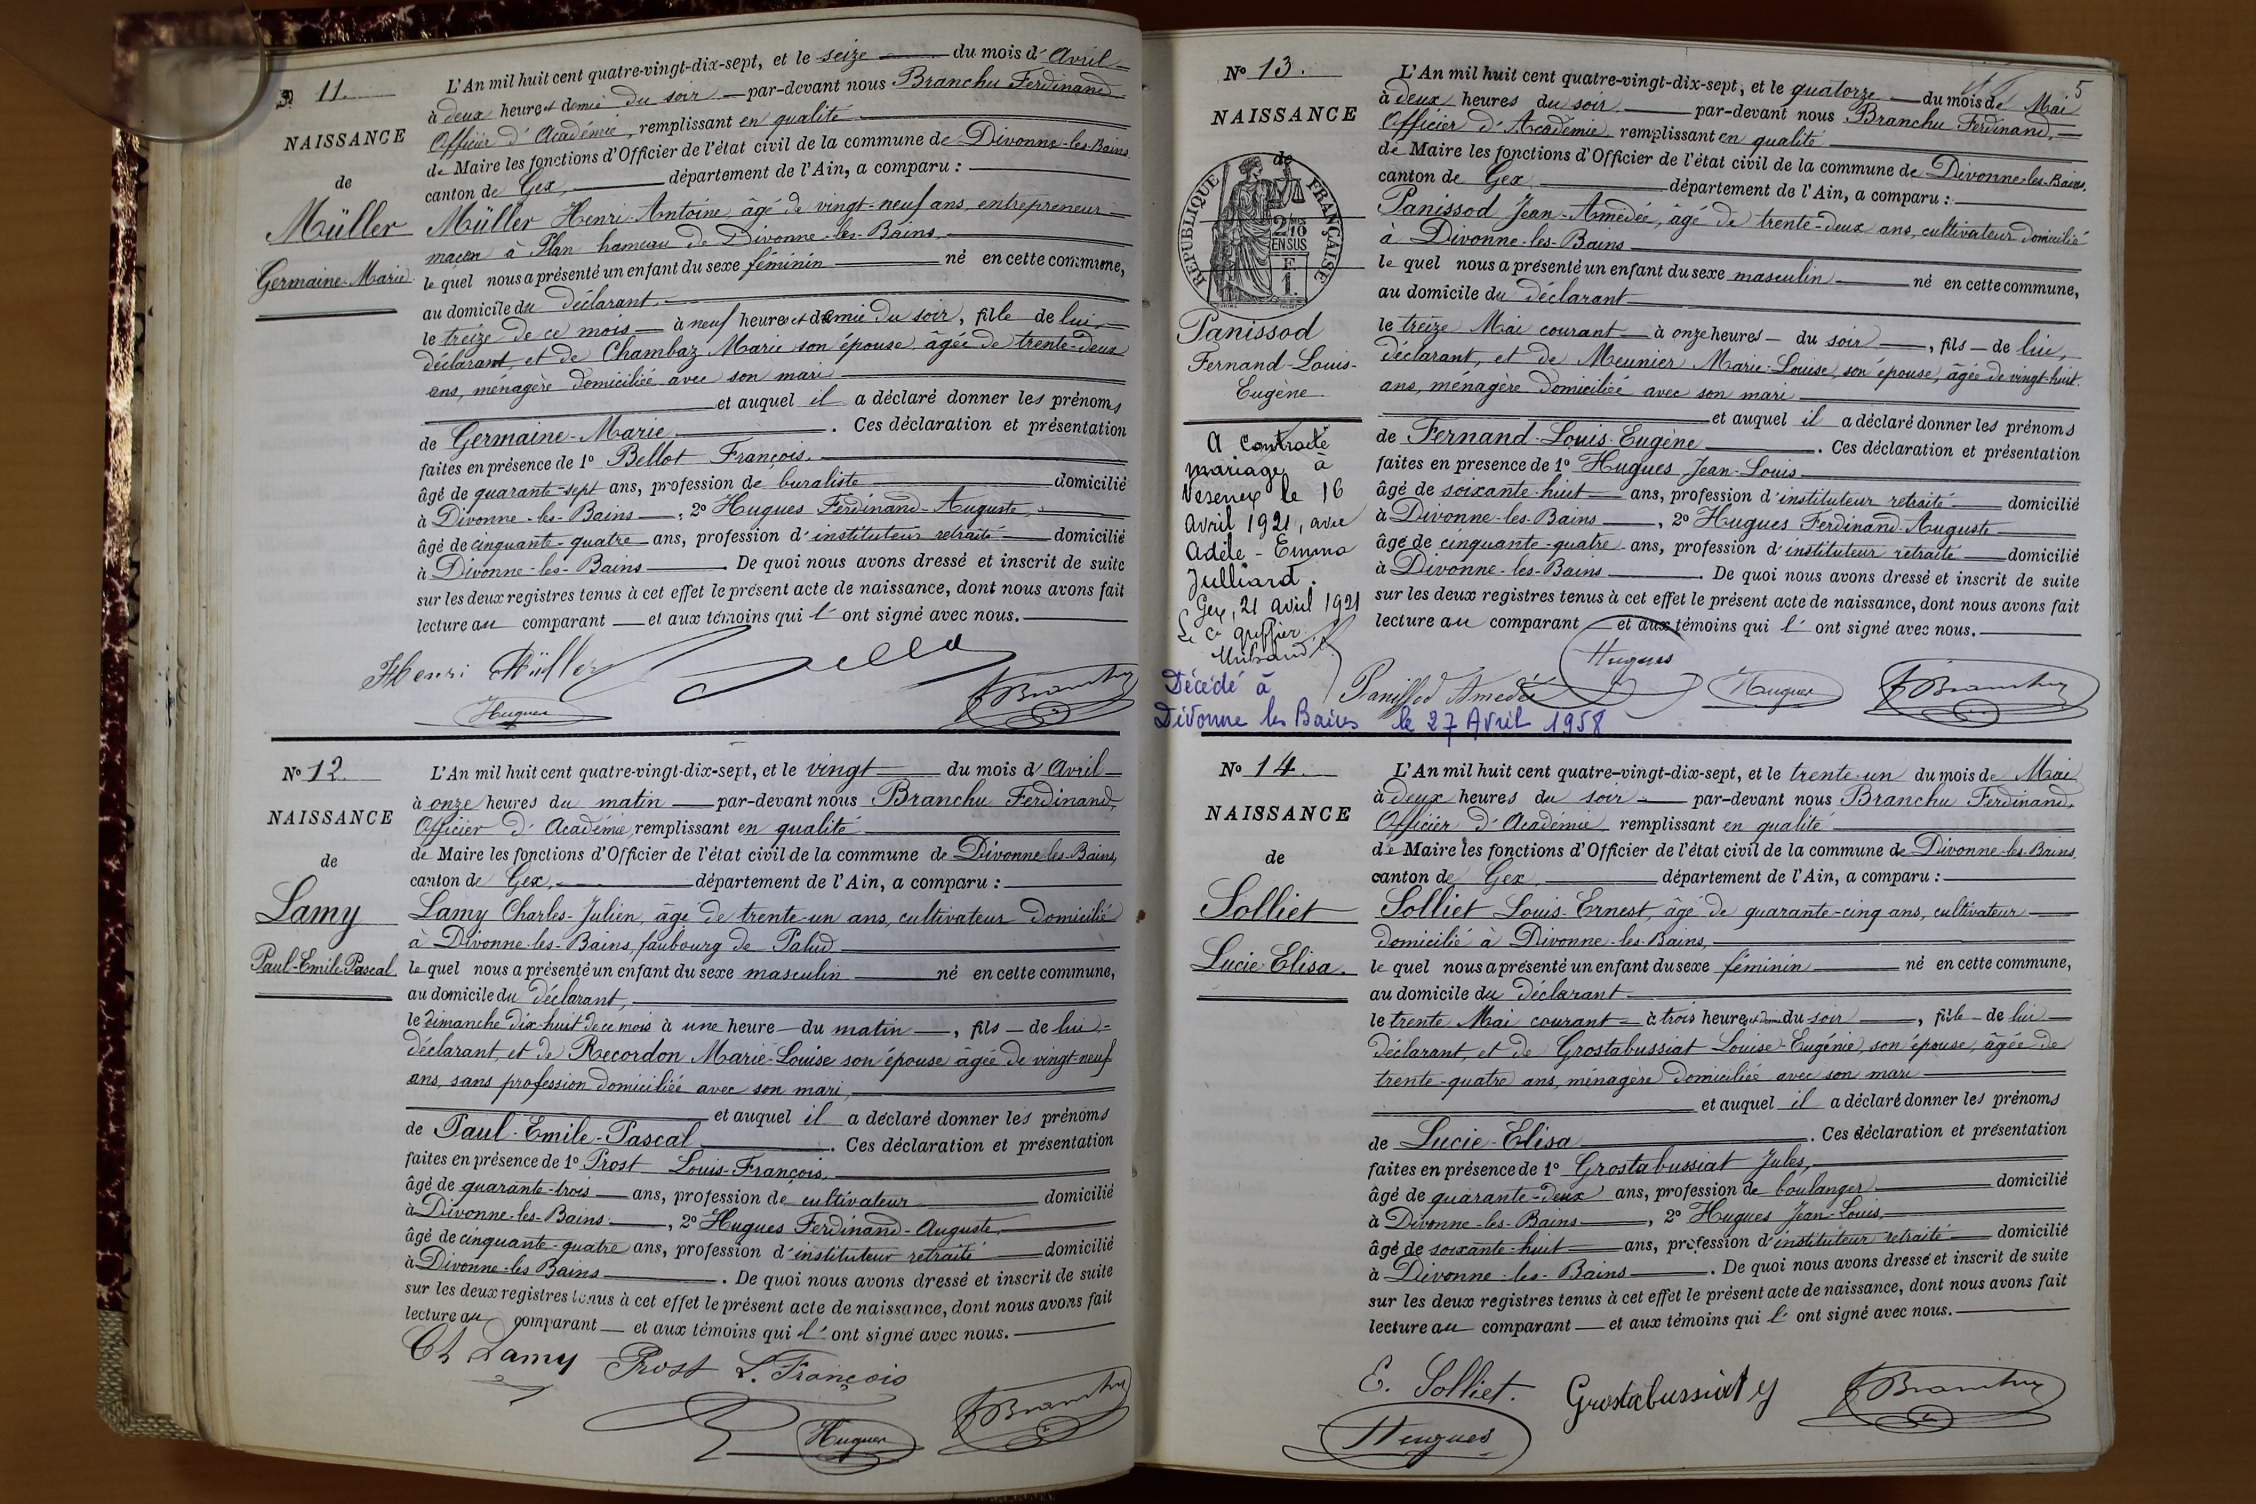 N° 11.
NAISSANCE
de
Müller
Germaine-Marie
L'An mil huit cent quatre-vingt-dix-sept, et le seize du mois d'Avril
à deux heures et demie du soir par-devant nous Branchu Ferdinand
Officier d'Académie, remplissant en qualité
de Maire les fonctions d'Officier de l'état civil de la commune de Divonne-les-Bains
canton de Gex, département de l'Ain, a comparu :
Müller Henri-Antoine, âgé de vingt-neuf ans, entrepreneur
maçon à Plan hameau de Divonne-les-Bains
le quel nous a présenté un enfant du sexe féminin né en cette commune,
au domicile du déclarant,
le treize de ce mois à neuf heures et demie du soir, fille de lui,
déclarant, et de Chambaz Marie son épouse âgée de trente-deux
ans, ménagère domiciliée avec son mari
et auquel il a déclaré donner les prénoms
de Germaine-Marie. Ces déclaration et présentation
faites en présence de 1° Bellot François,
âgé de quarante-sept ans, profession de buraliste domicilié
à Divonne-les-Bains, 2° Hugues Ferdinand-Auguste,
âgé de cinquante-quatre ans, profession d'instituteur retraité domicilié
à Divonne-les-Bains. De quoi nous avons dressé et inscrit de suite
sur les deux registres tenus à cet effet le présent acte de naissance, dont nous avons fait
lecture au comparant et aux témoins qui l'ont signé avec nous.
Henri Müller
Hugues
F Branchu
N° 12.
NAISSANCE
de
Lamy
Paul-Emile-Pascal
L'An mil huit cent quatre-vingt-dix-sept, et le vingt du mois d'Avril
à onze heures du matin par-devant nous Branchu Ferdinand,
Officier d'Académie, remplissant en qualité
de Maire les fonctions d'Officier de l'état civil de la commune de Divonne-les-Bains,
canton de Gex, département de l'Ain, a comparu :
Lamy Charles-Julien, âgé de trente-un ans, cultivateur domicilié
à Divonne-les-Bains, faubourg de Palud
le quel nous a présenté un enfant du sexe masculin né en cette commune,
au domicile du déclarant,
le dimanche dix-huit de ce mois à une heure du matin, fils de lui
déclarant, et de Recordon Marie-Louise son épouse âgée de vingt-neuf
ans, sans profession domiciliée avec son mari,
et auquel il a déclaré donner les prénoms
de Paul-Emile-Pascal. Ces déclaration et présentation
faites en présence de 1° Prost Louis-François,
âgé de quarante-trois ans, profession de cultivateur domicilié
à Divonne-les-Bains, 2° Hugues Ferdinand-Auguste,
âgé de cinquante-quatre ans, profession d'instituteur retraité domicilié
à Divonne-les-Bains. De quoi nous avons dressé et inscrit de suite
sur les deux registres tenus à cet effet le présent acte de naissance, dont nous avons fait
lecture au comparant et aux témoins qui l'ont signé avec nous.
Ch Lamy Prost L. François
Hugues
F Branchu
5
N° 13.
NAISSANCE
de
RÉPUBLIQUE FRANÇAISE
2/10
EN SUS
Panissod
Fernand-Louis-
Eugène
A contracté
mariage à
Vesenex le 16
avril 1921, avec
Adèle-Emma
Julliard.
Gex, 21 avril 1921
Le Cis greffier
Décédé à
Divonne les Bains le 27 Avril 1958
L'An mil huit cent quatre-vingt-dix-sept, et le quatorze du mois de Mai
à deux heures du soir par-devant nous Branchu Ferdinand,
Officier d'Académie remplissant en qualité
de Maire les fonctions d'Officier de l'état civil de la commune de Divonne-les-Bains,
canton de Gex département de l'Ain, a comparu :
Panissod Jean-Amédée, âgé de trente-deux ans, cultivateur domicilié
à Divonne-les-Bains
le quel nous a présenté un enfant du sexe masculin né en cette commune,
au domicile du déclarant
le treize Mai courant à onze heures du soir, fils de lui,
déclarant, et de Meunier Marie-Louise, son épouse, âgée de vingt-huit
ans, ménagère domiciliée avec son mari
et auquel il a déclaré donner les prénoms
de Fernand-Louis-Eugène. Ces déclaration et présentation
faites en presence de 1° Hugues Jean-Louis
âgé de soixante-huit ans, profession d'instituteur retraité domicilié
à Divonne-les-Bains, 2° Hugues Ferdinand-Auguste
âgé de cinquante-quatre ans, profession d'instituteur retraité domicilié
à Divonne-les-Bains. De quoi nous avons dressé et inscrit de suite
sur les deux registres tenus à cet effet le présent acte de naissance, dont nous avons fait
lecture au comparant et aux témoins qui l'ont signé avec nous.
Panissod Amédée Hugues Hugues F Branchu
N° 14.
NAISSANCE
de
Solliet
Lucie-Elisa.
L'An mil huit cent quatre-vingt-dix-sept, et le trente-un du mois de Mai
à deux heures du soir par-devant nous Branchu Ferdinand,
Officier d'Académie remplissant en qualité
de Maire les fonctions d'Officier de l'état civil de la commune de Divonne-les-Bains,
canton de Gex, département de l'Ain, a comparu :
Solliet Louis-Ernest, âgé de quarante-cinq ans, cultivateur
domicilié à Divonne-les-Bains,
le quel nous a présenté un enfant du sexe féminin né en cette commune,
au domicile du déclarant
le trente Mai courant à trois heures et demie du soir, fille de lui
déclarant, et de Grostabussiat Louise-Eugénie, son épouse, âgée de
trente-quatre ans, ménagère domiciliée avec son mari
et auquel il a déclaré donner les prénoms
de Lucie-Elisa. Ces déclaration et présentation
faites en présence de 1° Grostabussiat Jules,
âgé de quarante-deux ans, profession de boulanger domicilié
à Divonne-les-Bains, 2° Hugues Jean-Louis,
âgé de soixante-huit ans, profession d'instituteur retraité domicilié
à Divonne-les-Bains. De quoi nous avons dressé et inscrit de suite
sur les deux registres tenus à cet effet le présent acte de naissance, dont nous avons fait
lecture au comparant et aux témoins qui l'ont signé avec nous.
E. Solliet. Grostabussiat J F Branchu
Hugues